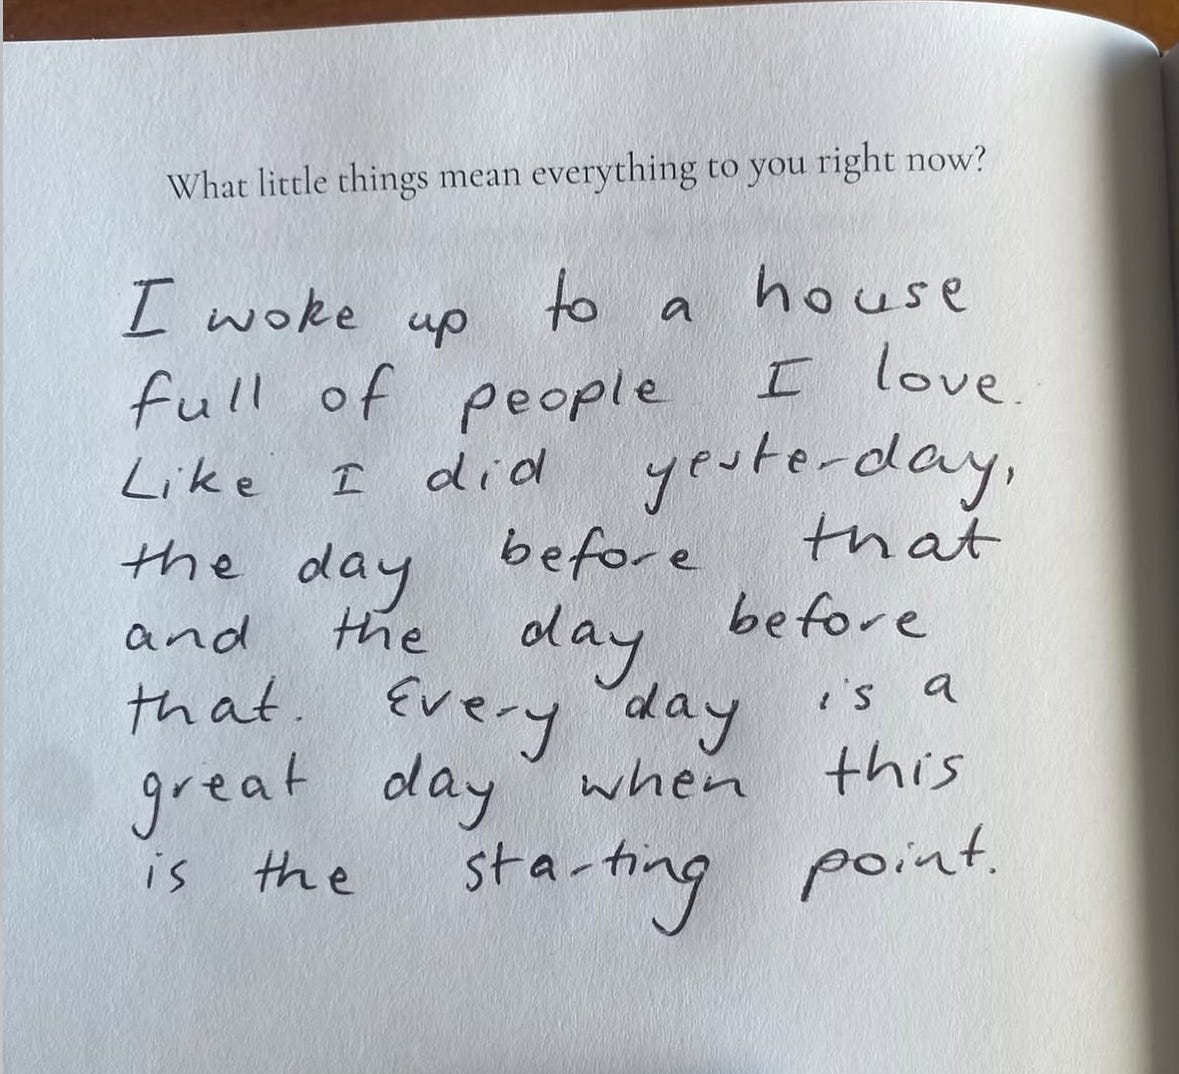 What little things mean everything to you right now?
I woke up to a house
full of people I love.
Like I did yesterday,
the day before that
and the day before
that. Every day is a
great day when this
is the starting point.